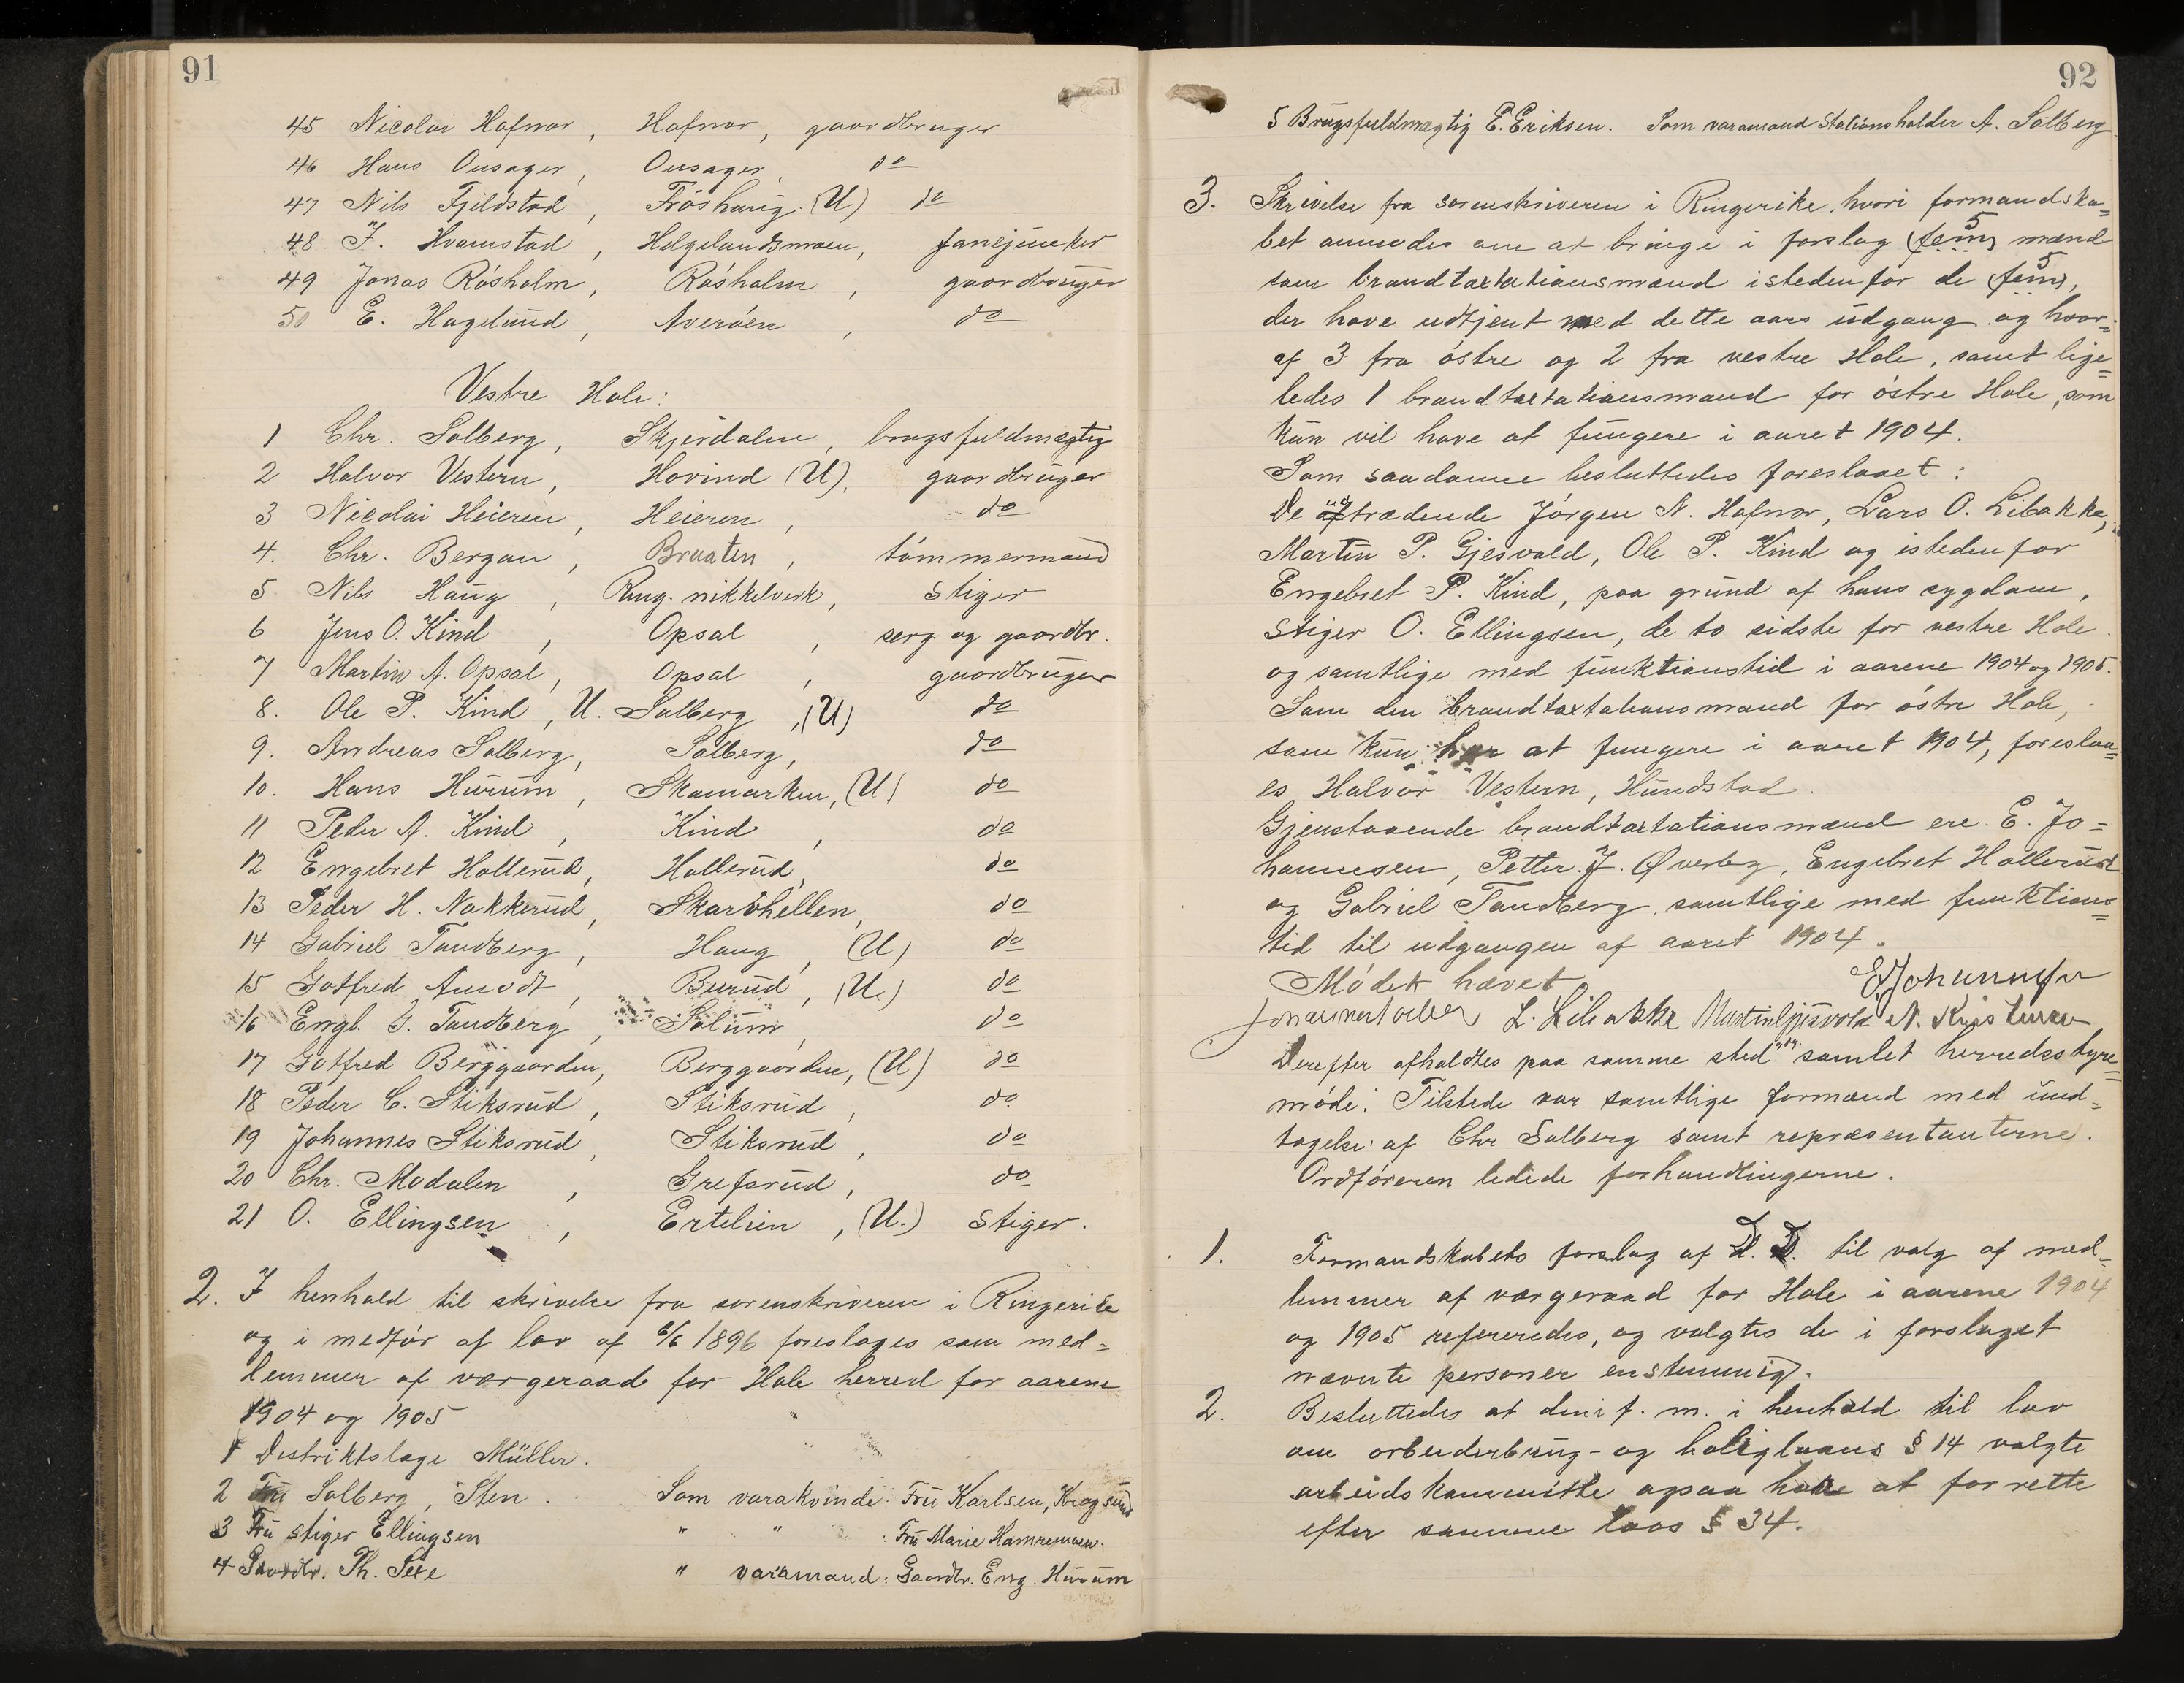 91
45 Nicolai Hafnor, Hafnor, gaardbruger
46 Hans Onsager, Onsager, do
47 Nils Fjeldstad, Fröshaug. (U) do
48 J. Hvamstad, Helgelandsmoen, fanejunker
49 Jonas Rösholm, Rösholm, gaardbruger
50 E. Hagelund, Averöen, do
Vestre Hole:
1 Chr. Solberg, Skjerdalen, brugsfuldmægtig
2 Halvor Vestern, Hovind (U), gaardbruger
3 Nicolai Heieren, Heieren, do
4. Chr. Bergan, Braaten, tömmermand
5 Nils Haug, Ring. nikkelverk, Stiger
6 Jens O. Kind, Opsal, serg. og gaardbr.
7 Martin A. Opsal, Opsal, gaardbruger
8. Ole P. Kind, U. Solberg, (U) do
9. Andreas Solberg, Solberg, do
10. Hans Hurum, Skamarken, (U) do
11 Peder A. Kind, Kind, do
12 Engebret Hollerud, Hollerud, do
13 Peder H. Nakkerud, Skarvhellen, do
14 Gabriel Tandberg, Haug, (U) do
15 Gotfred Amodt, Burud, (U.) do
16 Engb. G. Tandberg, Solum, do
17 Gotfred Berggaarden, Berggaarden, (U) do
18 Peder C. Stiksrud, Stiksrud, do.
19 Johannes Stiksrud, Stiksrud, do
20 Chr. Modalen, Grefsrud, do
21 O. Ellingsen, Ertelien, (U.) Stiger.
2. I henhold til skrivelse fra sorenskriveren i Ringerike
og i medför af lov af 6/6 1896 foreslages som med=
lemmer af vergeraad for Hole herred for aarene
1904 og 1905
1 Distriktslæge Müller.
2 Fru Solberg, Sten. Som varakvinde: Fru Karlsen, Kragsund
3 Fru stiger Ellingsen " " : Fru Marie
4 Gaardbr. Th. " varamand: Gaardbr. Eng. Hurum
92
5 Brugsfuldmægtig E. Eriksen. Som varamand Stationsholder A. Solberg
3. Skrivelse fra sorenskriveren i Ringerike, hvori formandska=
bet anmodes om at bringe i forslag (fem) 5 mænd
som brandtaxtationsmænd istedenfor de (fem) 5,
der have udtjent med dette aars udgang og hvor=
af 3 fra östre og 2 fra vestre Hole, samt lige=
ledes 1 brandtaxtationsmand for östre Hole, som
kun vil have at fungere i aaret 1904.
Som saadanne besluttedes foreslaaet:
De udtrædende Jörgen N. Hafnor, Lars O. Libakke,
Martin P. Gjesvald, Ole P. Kind og istedenfor
Engebret P. Kind, paa grund af hans sygdom,
Stiger O. Ellingsen, de to sidste for vestre Hole
og samtlige med funktionstid i aarene 1904 og 1905.
Som den brandtaxtationsmand for östre Hole,
som kun har at fungere i aaret 1904, foreslaa=
es Halvor Vestern, Hundstad.
Gjenstaaende brandtaxtationsmænd ere. E. Jo=
hannesen, Petter J. Øverby, Engebret Hollerud
og Gabriel Tandberg, samtlige med funktions=
tid til udgangen af aaret 1904.
Mödet hævet
E. Johannesen
L. Libakke Martin Gjesvold N. Kristensen
Derefter afholdtes paa samme sted samlet herredsstyre=
möde. Tilstede var samtlige formænd med und=
tagelse af Chr Solberg samt repræsentanterne.
Ordföreren ledede forhandlingerne.
1. Formandskabets forslag af D. D. til valg af med=
lemmer af vergeraad for Hole i aarene 1904
og 1905 refereredes, og valgtes de i forslaget
nævnte personer enstemmig.
2. Besluttedes at den i f. m. i henhold til lov
om arbeiderbrug- og boliglaans § 14 valgte
arbeidskommitte ogsaa have at forrette
efter samme lovs § 34.